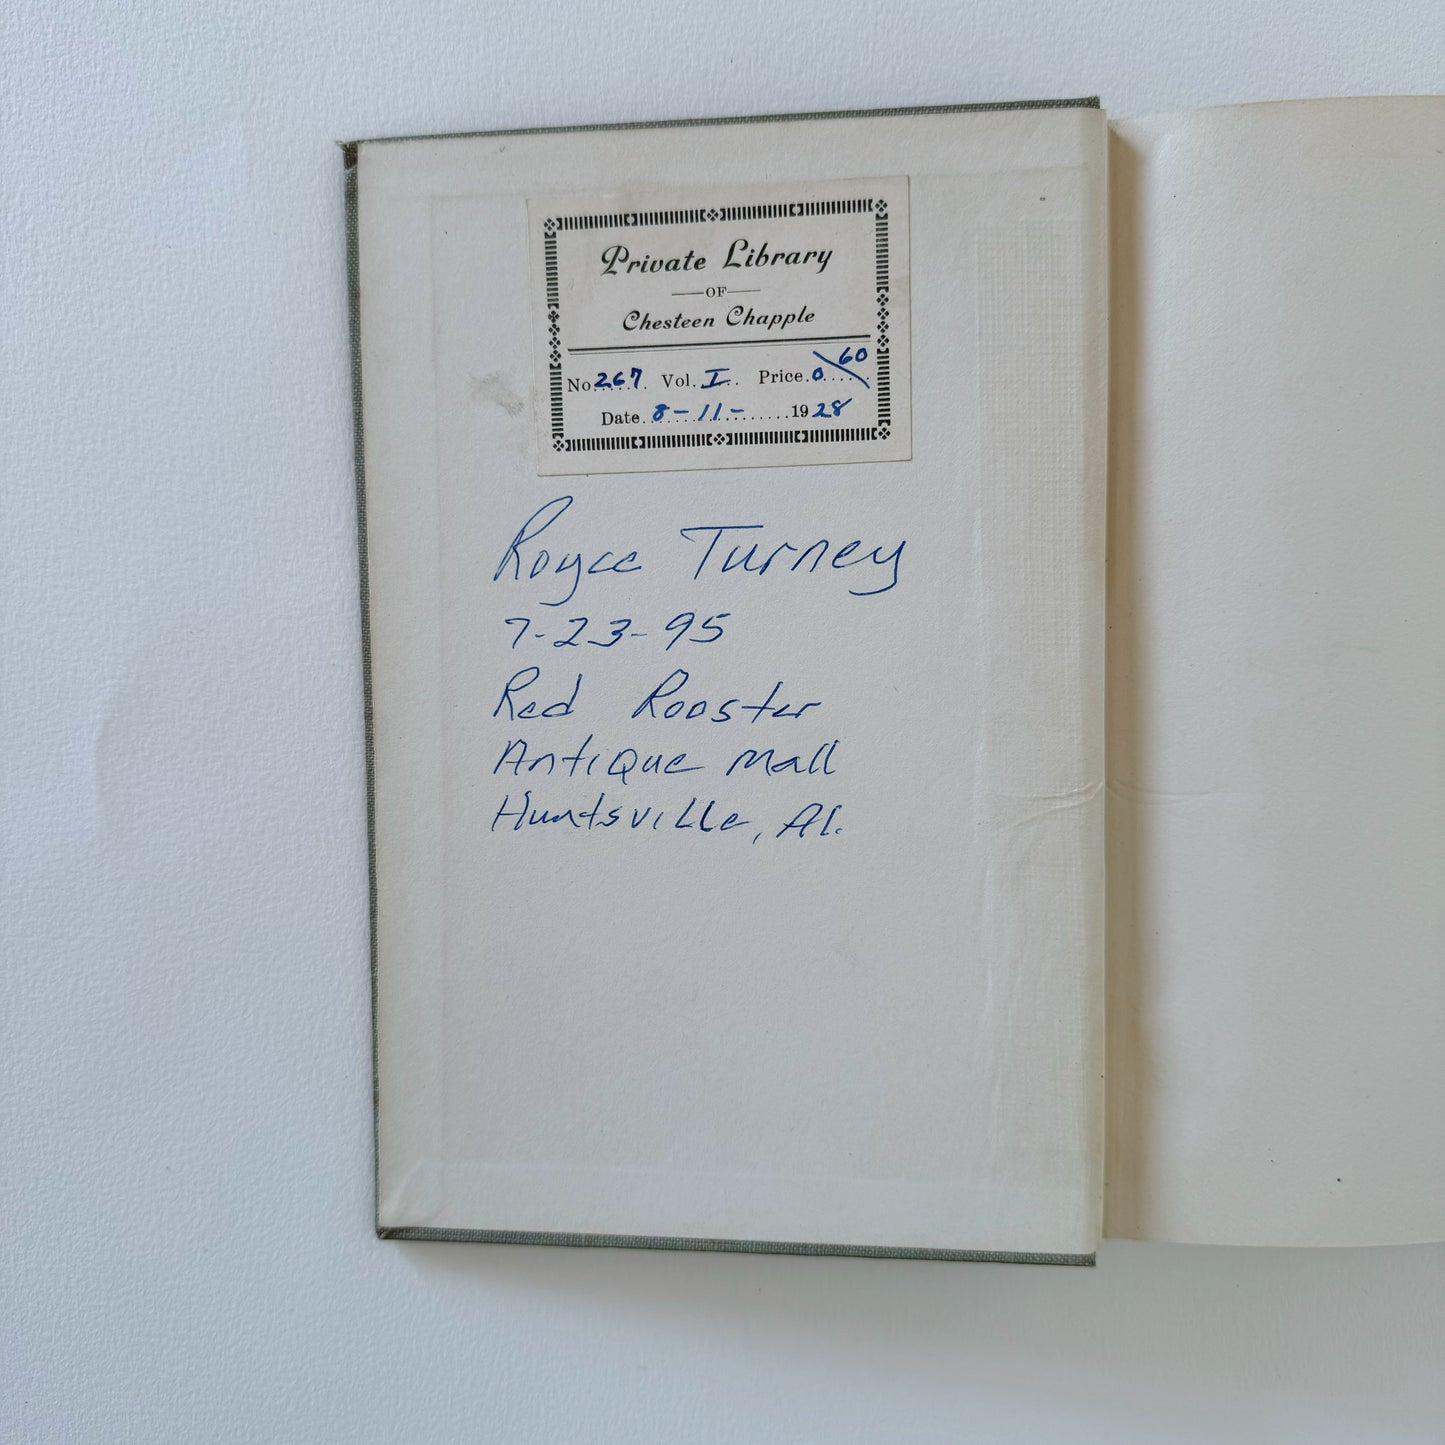 Private Library
OF
Chesteen Chapple
No. 267 Vol. I Price. 0/60
Date. 8-11- 1928
Royce Turney
7-23-95
Red Rooster
Antique Mall
Huntsville, Al.